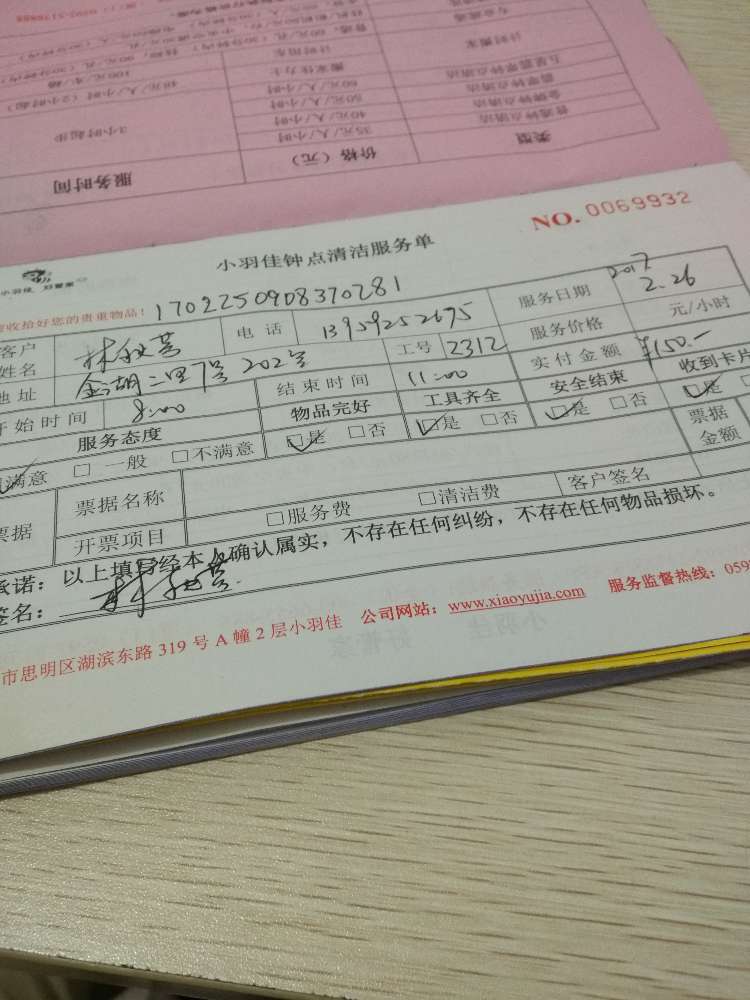 类型 价格（元） 服务时间
普通钟点清洁 35元/人/小时 3小时起步
金牌钟点清洁 40元/人/小时
翡翠钟点清洁 50元/人/小时
五星翡翠钟点清洁 60元/人/小时
计时搬家 搬家佳力士 48元/人/小时（2小时起）
计时用车 100元/车/趟
NO. 0069932
小羽佳钟点清洁服务单
小羽佳 好管家
收拾好您的贵重物品！ 1702250908370281
客户姓名 电话 13959252695 服务日期 2017 2.26
地址 金湖二里7号202室 工号 2312 服务价格 元/小时
开始时间 8:00 结束时间 11:00 实付金额 ¥150.-
服务态度 物品完好 工具齐全 安全结束 收到卡片
满意 □ 一般 □不满意 □是 □否 □是 □否 □是 □否 □是
票据 票据名称 客户签名 票据金额
开票项目 □服务费 □清洁费
承诺：以上填写经本人确认属实，不存在任何纠纷，不存在任何物品损坏。
签名：
市思明区湖滨东路 319 号 A 幢 2 层小羽佳 公司网站：www.xiaoyujia.com 服务监督热线：059